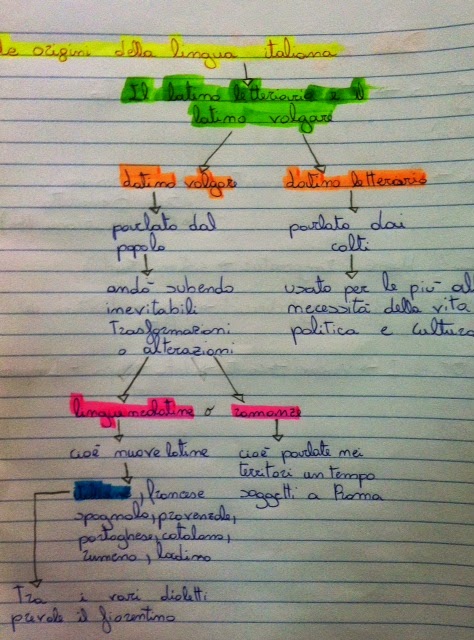 le origini della lingua italiana
Il latino letterario e il
latino volgare
latino volgare
latino letterario
parlato dal
popolo
parlato dai
colti
andò subendo
inevitabili
trasformazioni
o alterazioni
usato per le più al
necessità della vita
politica e cultura
lingue neolatine o romanze
cioè nuove latine
cioè parlate nei
territori un tempo
soggetti a Roma
, francese
spagnolo, provenzale,
portoghese, catalano,
rumeno, ladino
Tra i vari dialetti
prevale il fiorentino